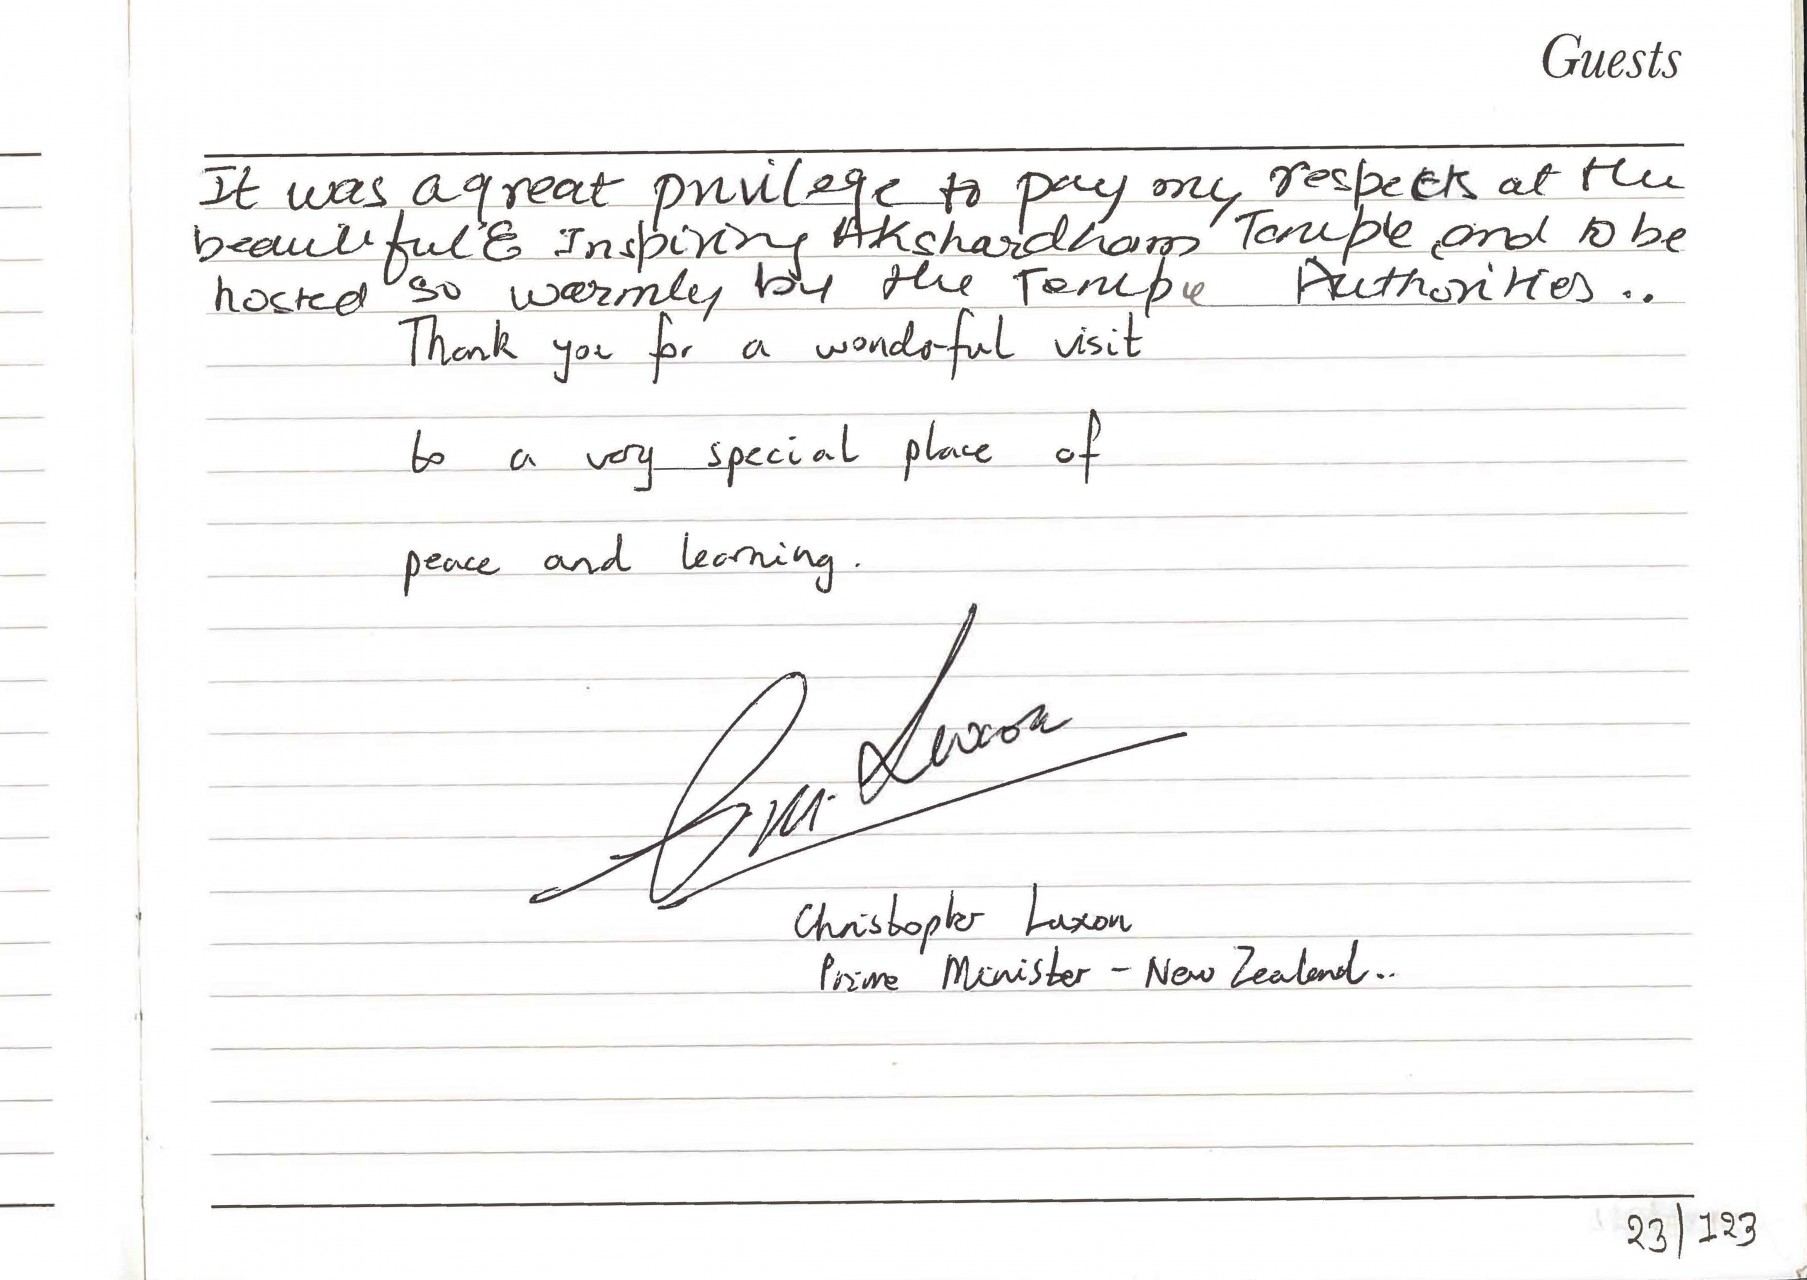 Guests
It was a great privilege to pay my respects at the
beautiful & Inspiring Akshardham Temple and to be
hosted so warmly by the Temple Authorities..
Thank you for a wonderful visit
to a very special place of
peace and learning.
C.M. Luxon
Christopher Luxon
Prime Minister - New Zealand..
23/123